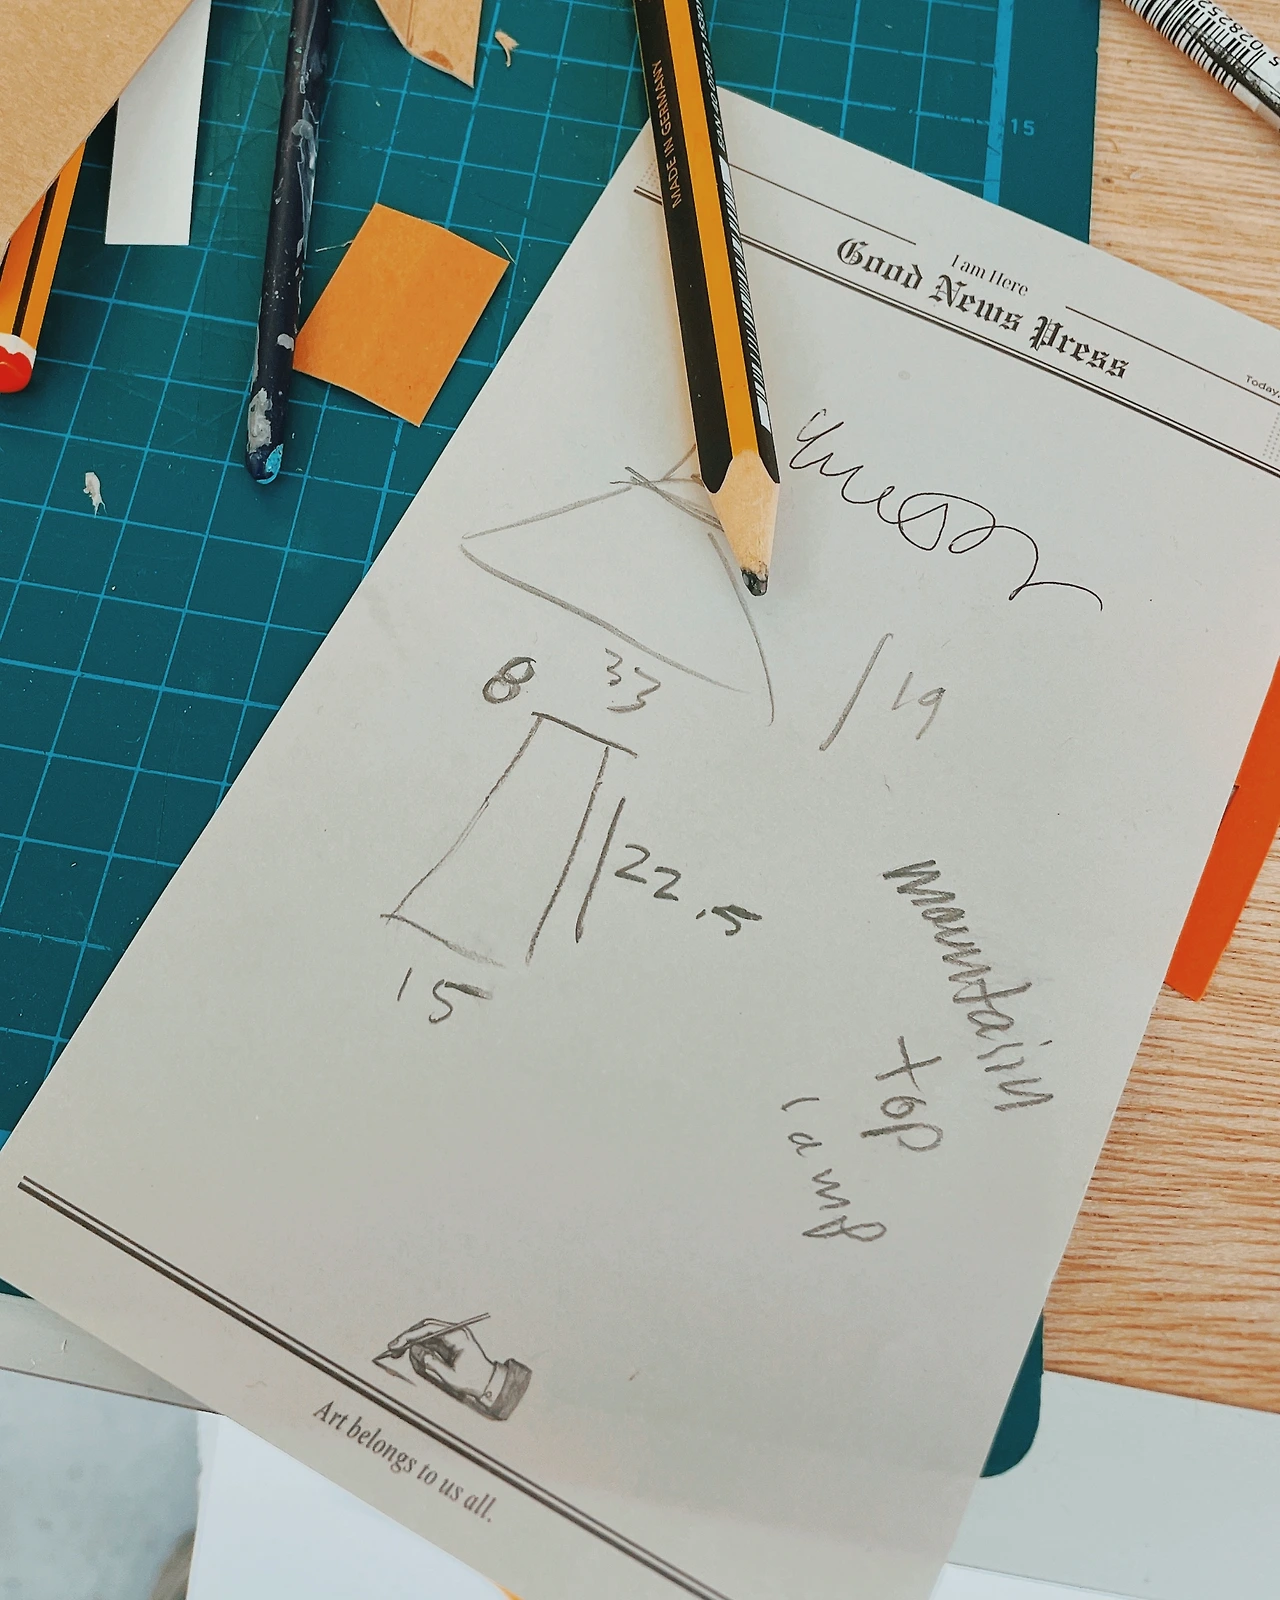 15
MADE IN GERMANY
I am Here
Good News Press
Today.
19
8
33
22.5
15
mountain
top
lamp
Art belongs to us all.